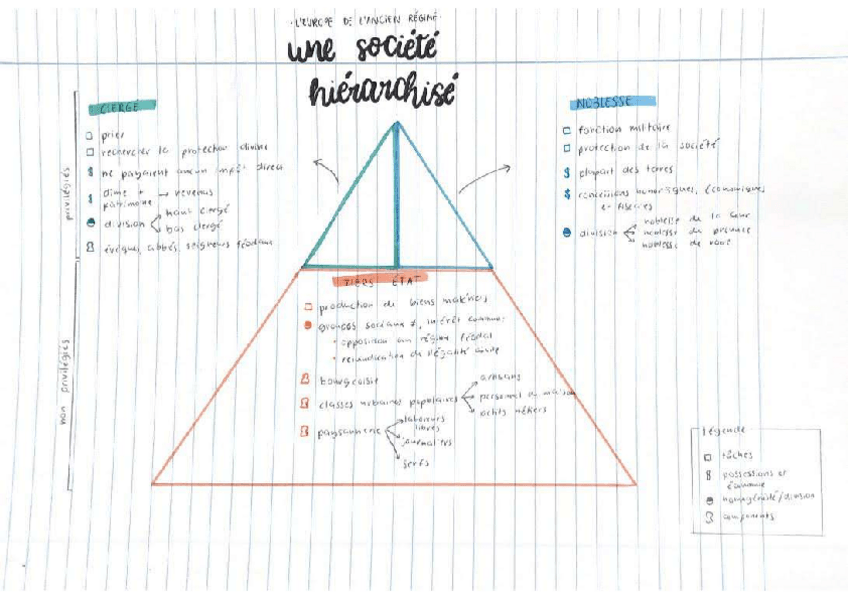 · L'EUROPE DE L'ANCIEN RÉGIME ·
une société
hiérarchisé
privilégiés
CLERGÉ
prier
rechercher la protection divine
ne payaient aucun impôt direct
dîme + patrimoine → revenus
division
haut clergé
bas clergé
évêques, abbés, seigneurs féodaux
NOBLESSE
fonction militaire
protection de la société
$ plupart des terres
$ concessions honorifiques, économiques
et fiscales
division
noblesse de la cour
noblesse de province
noblesse de robe
non privilégiés
TIERS ÉTAT
production de biens matériels
groupes sociaux ≠, intérêt commun:
· opposition au régime féodal
· revendication de l'égalité civile
bourgeoisie
classes urbaines populaires
artisans
personnel de maison
petits métiers
paysannerie
laboureurs
libres
journaliers
serfs
légende
tâches
possessions et
économie
homogénéité/division
components